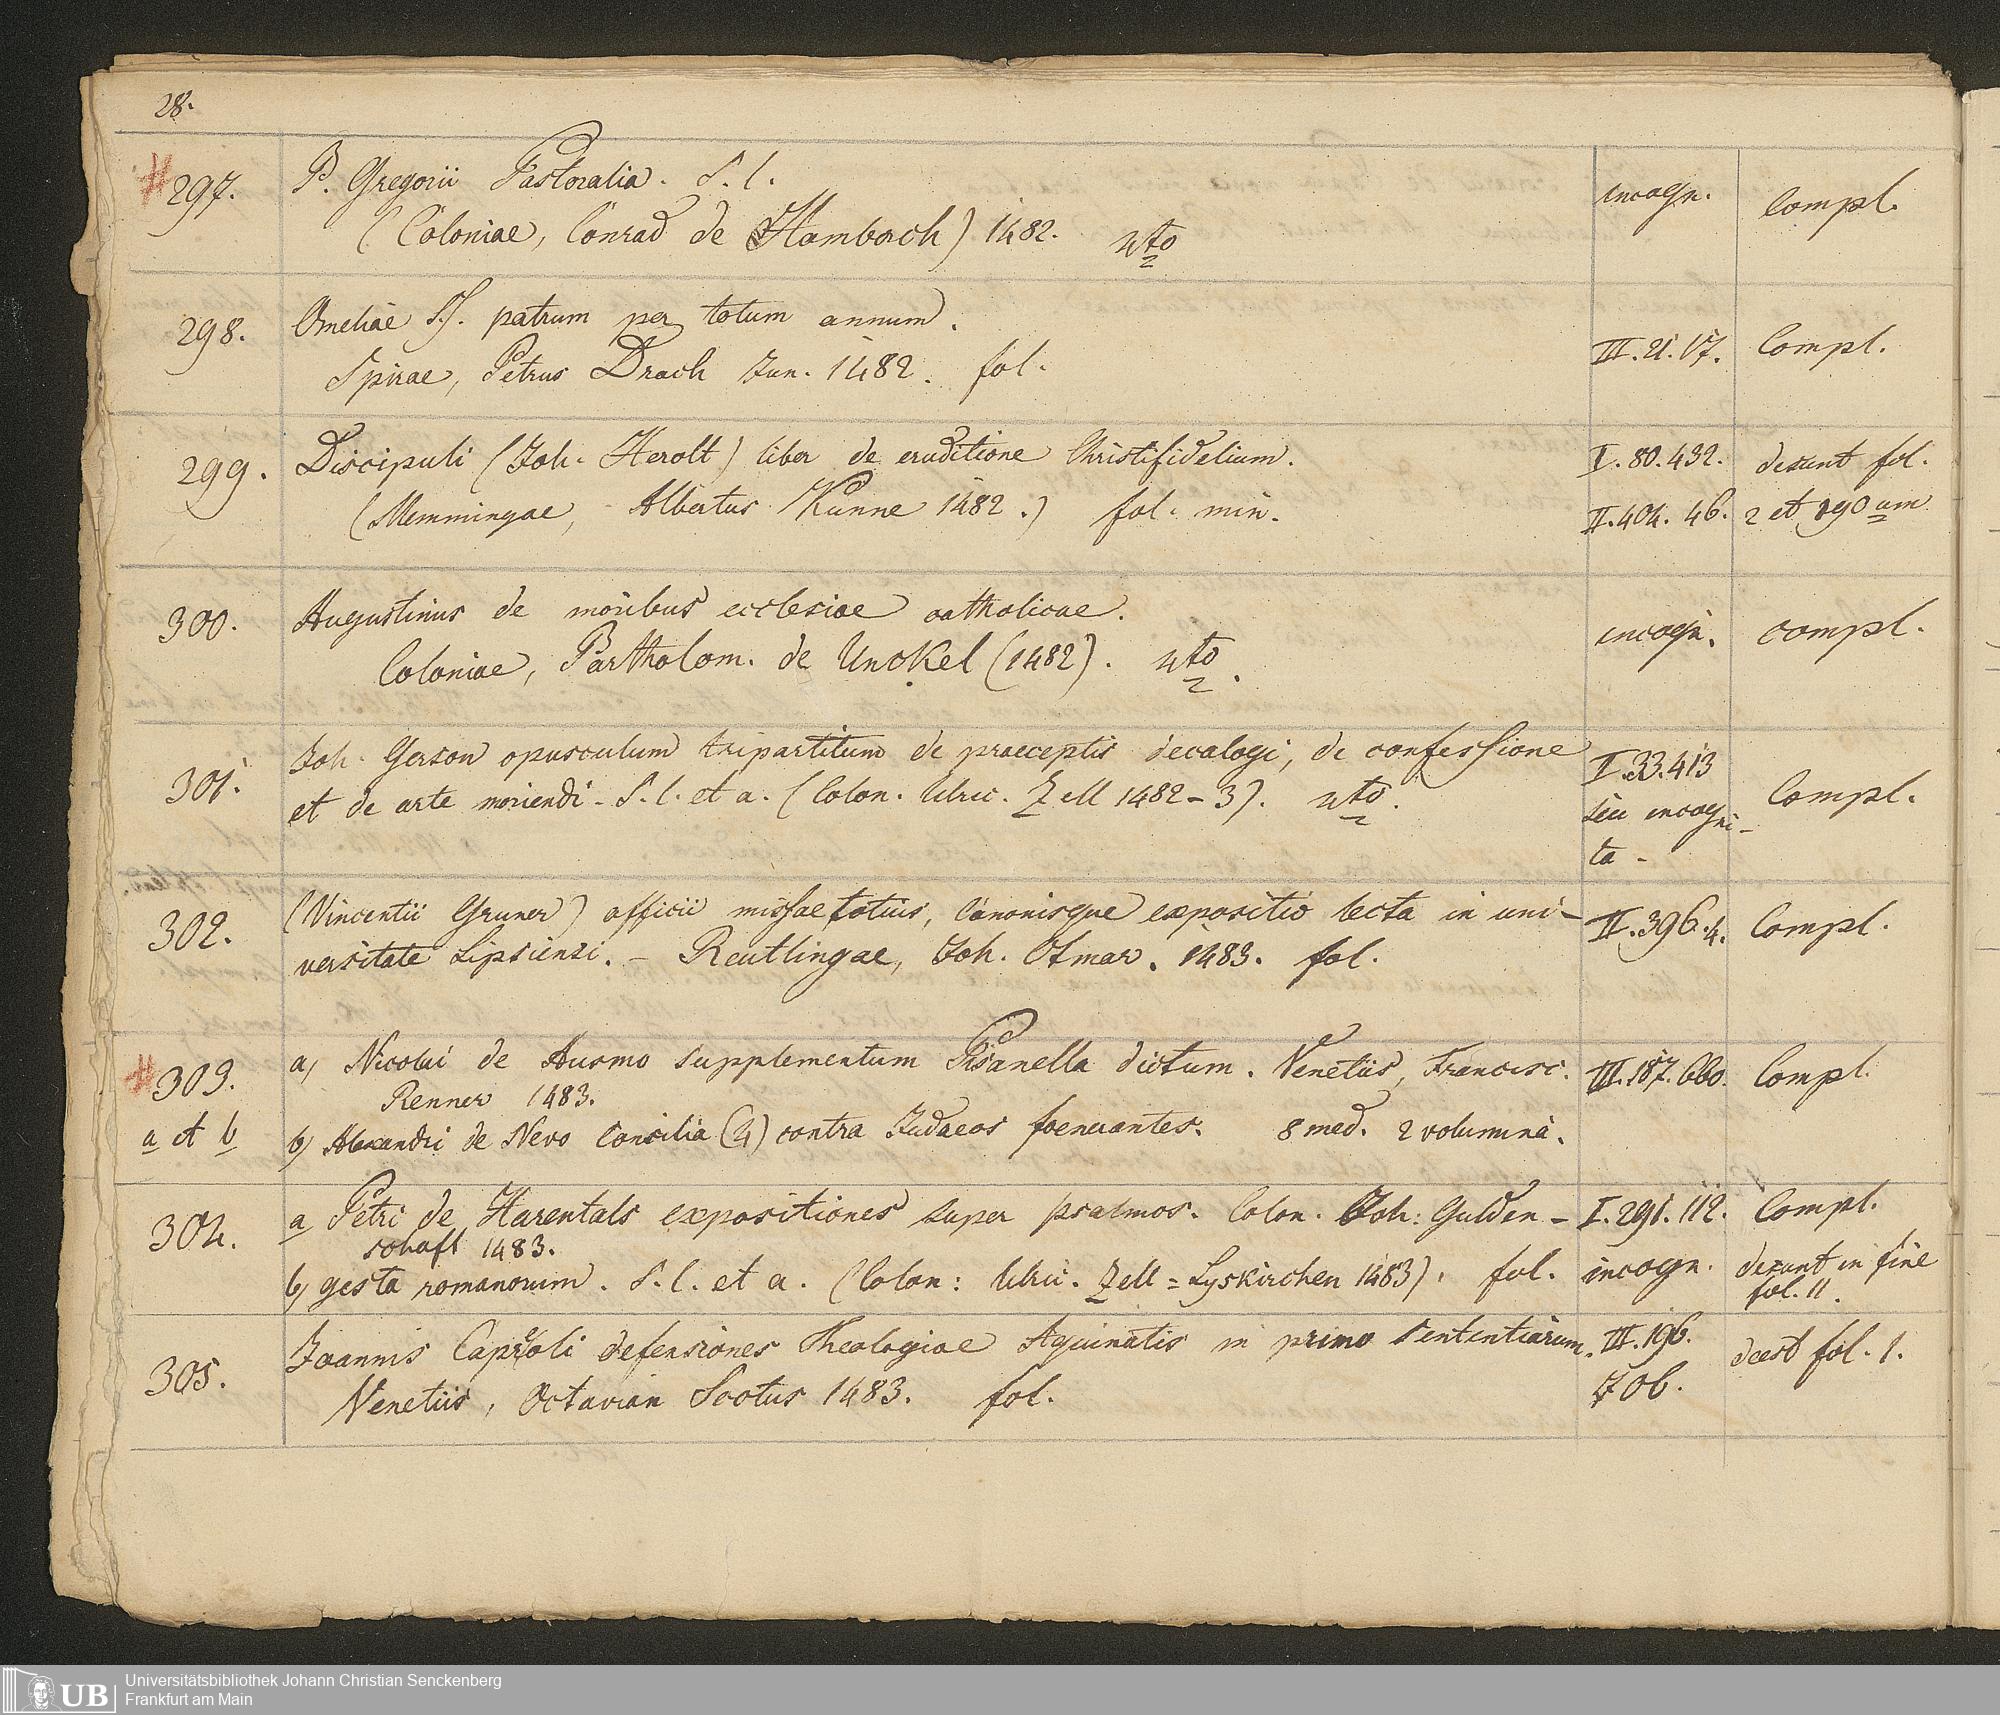 28.
# 297.
B. Gregorii Pastoralia. S. l.
(Coloniae, Conrad de Hamborch) 1482. 4to
incogn.
Compl.
298.
Omeliae S.S. patrum per totum annum.
Spirae, Petrus Drach Jun. 1482. fol.
III. 21. 17.
Compl.
299.
Discipuli (Joh. Herolt) liber de eruditione Christifidelium.
(Memmingae, Albertus Kunne 1482.) fol. min.
I. 80. 432.
II. 404. 46.
desunt fol.
2 et 190um
300.
Augustinus de moribus ecclesiae catholicae.
Coloniae, Bartholom. de Unckel (1482). 4to.
incogn.
compl.
301.
Joh. Gerson opusculum tripartitum de praeceptis decalogi, de confessione
et de arte moriendi - S. l. et a. (Colon. Ulric. Zell 1482-3). 4to.
I. 33. 413
seu incogni-
ta -
Compl.
302.
(Vincentii Gruner) officii missae totius, Canonisque expositio lecta in uni-
versitate Lipsiensi. - Reutlingae, Joh. Otmar. 1483. fol.
II. 396. 4.
Compl.
# 303.
a et b
a, Nicolai de Ausmo supplementum Pisanella dictum. Venetiis, Francisc.
Renner 1483.
b) Alexandri de Nevo Consilia (4) contra Judaeos foenerantes. 8 med. 2 volumina.
III. 187. 660.
Compl.
304.
a Petri de Harentals expositiones super psalmos. Colon. Joh: Gulden-
schaff 1483.
b) gesta romanorum. S. l. et a. (Colon: Ulric. Zell = Lyskirchen 1483). fol.
I. 291. 112.
incogn.
Compl.
desunt in fine
fol. 11.
305.
Joannis Capreoli defensiones Theologiae Aquinatis in primo Sententiarum.
Venetiis, Octavian Scotus 1483. fol.
III. 196.
706.
deest fol. 1.
UB
Universitätsbibliothek Johann Christian Senckenberg
Frankfurt am Main